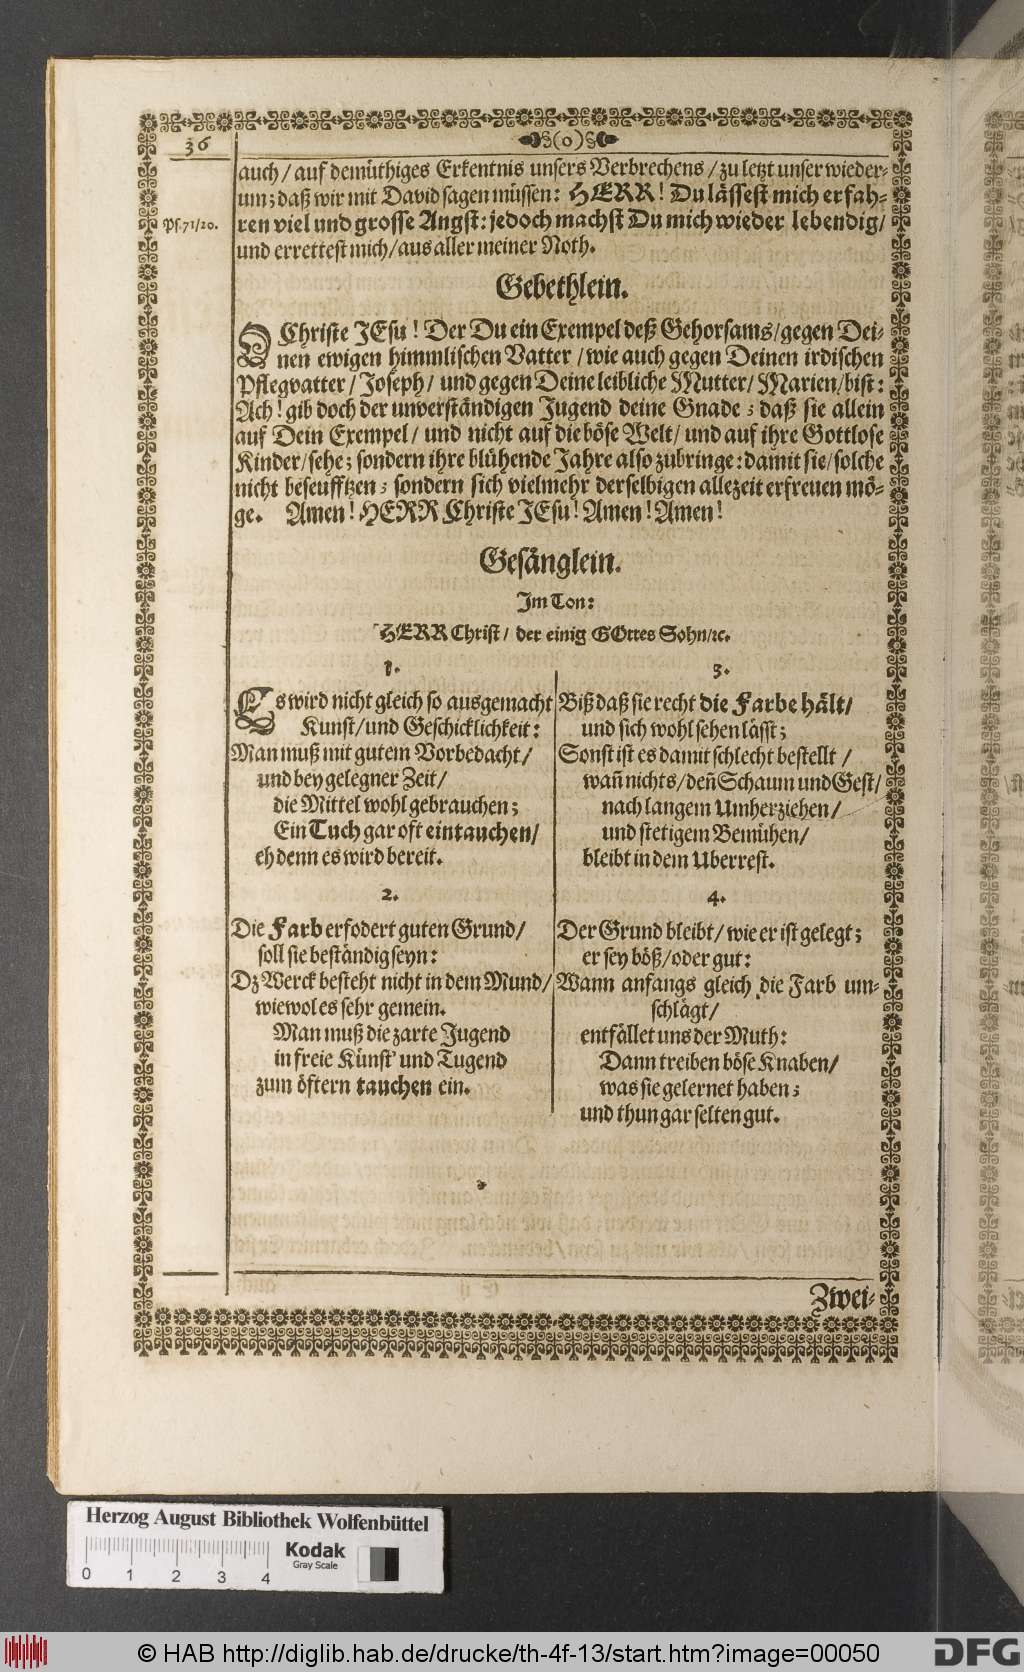 36
(o)
auch / auf demüthiges Erkentnis unsers Verbrechens / zu letzt unser wieder-
um; daß wir mit David sagen müssen: HERR! Du lässest mich erfah-
Ps. 71/20.
ren viel und grosse Angst: jedoch machst Du mich wieder lebendig/
und errettest mich / aus aller meiner Noth.
Gebethlein.
O Christe JEsu! Der Du ein Exempel deß Gehorsams / gegen Dei-
nen ewigen himmlischen Vatter / wie auch gegen Deinen irdischen
Pflegvatter / Joseph / und gegen Deine leibliche Mutter / Marien / bist:
Ach! gib doch der unverständigen Jugend deine Gnade; daß sie allein
auf Dein Exempel / und nicht auf die böse Welt / und auf ihre Gottlose
Kinder / sehe; sondern ihre blühende Jahre also zubringe: damit sie / solche
nicht beseufftzen; sondern sich vielmehr derselbigen allezeit erfreuen mö-
ge. Amen! HERR Christe JEsu! Amen! Amen!
Gesänglein.
Im Ton:
HERR Christ / der einig GOttes Sohn / ꝛc.
1.
Es wird nicht gleich so ausgemacht
Kunst / und Geschicklichkeit:
Man muß mit gutem Vorbedacht /
und bey gelegner Zeit /
die Mittel wohl gebrauchen;
Ein Tuch gar oft eintauchen /
eh denn es wird bereit.
2.
Die Farb erfodert guten Grund /
soll sie beständig seyn:
Dz Werck besteht nicht in dem Mund /
wiewol es sehr gemein.
Man muß die zarte Jugend
in freie Künst' und Tugend
zum öftern tauchen ein.
3.
Biß daß sie recht die Farbe hält /
und sich wohl sehen lässt;
Sonst ist es damit schlecht bestellt /
wañ nichts / deñ Schaum und Gest /
nach langem Umherziehen /
und stetigem Bemühen /
bleibt in dem Uberrest.
4.
Der Grund bleibt / wie er ist gelegt;
er sey böß / oder gut:
Wann anfangs gleich die Farb um-
schlägt /
entfället uns der Muth:
Dann treiben böse Knaben /
was sie gelernet haben;
und thun gar selten gut.
Zwei-
Herzog August Bibliothek Wolfenbüttel
Kodak
Gray Scale
0 1 2 3 4
© HAB http://diglib.hab.de/drucke/th-4f-13/start.htm?image=00050
DFG